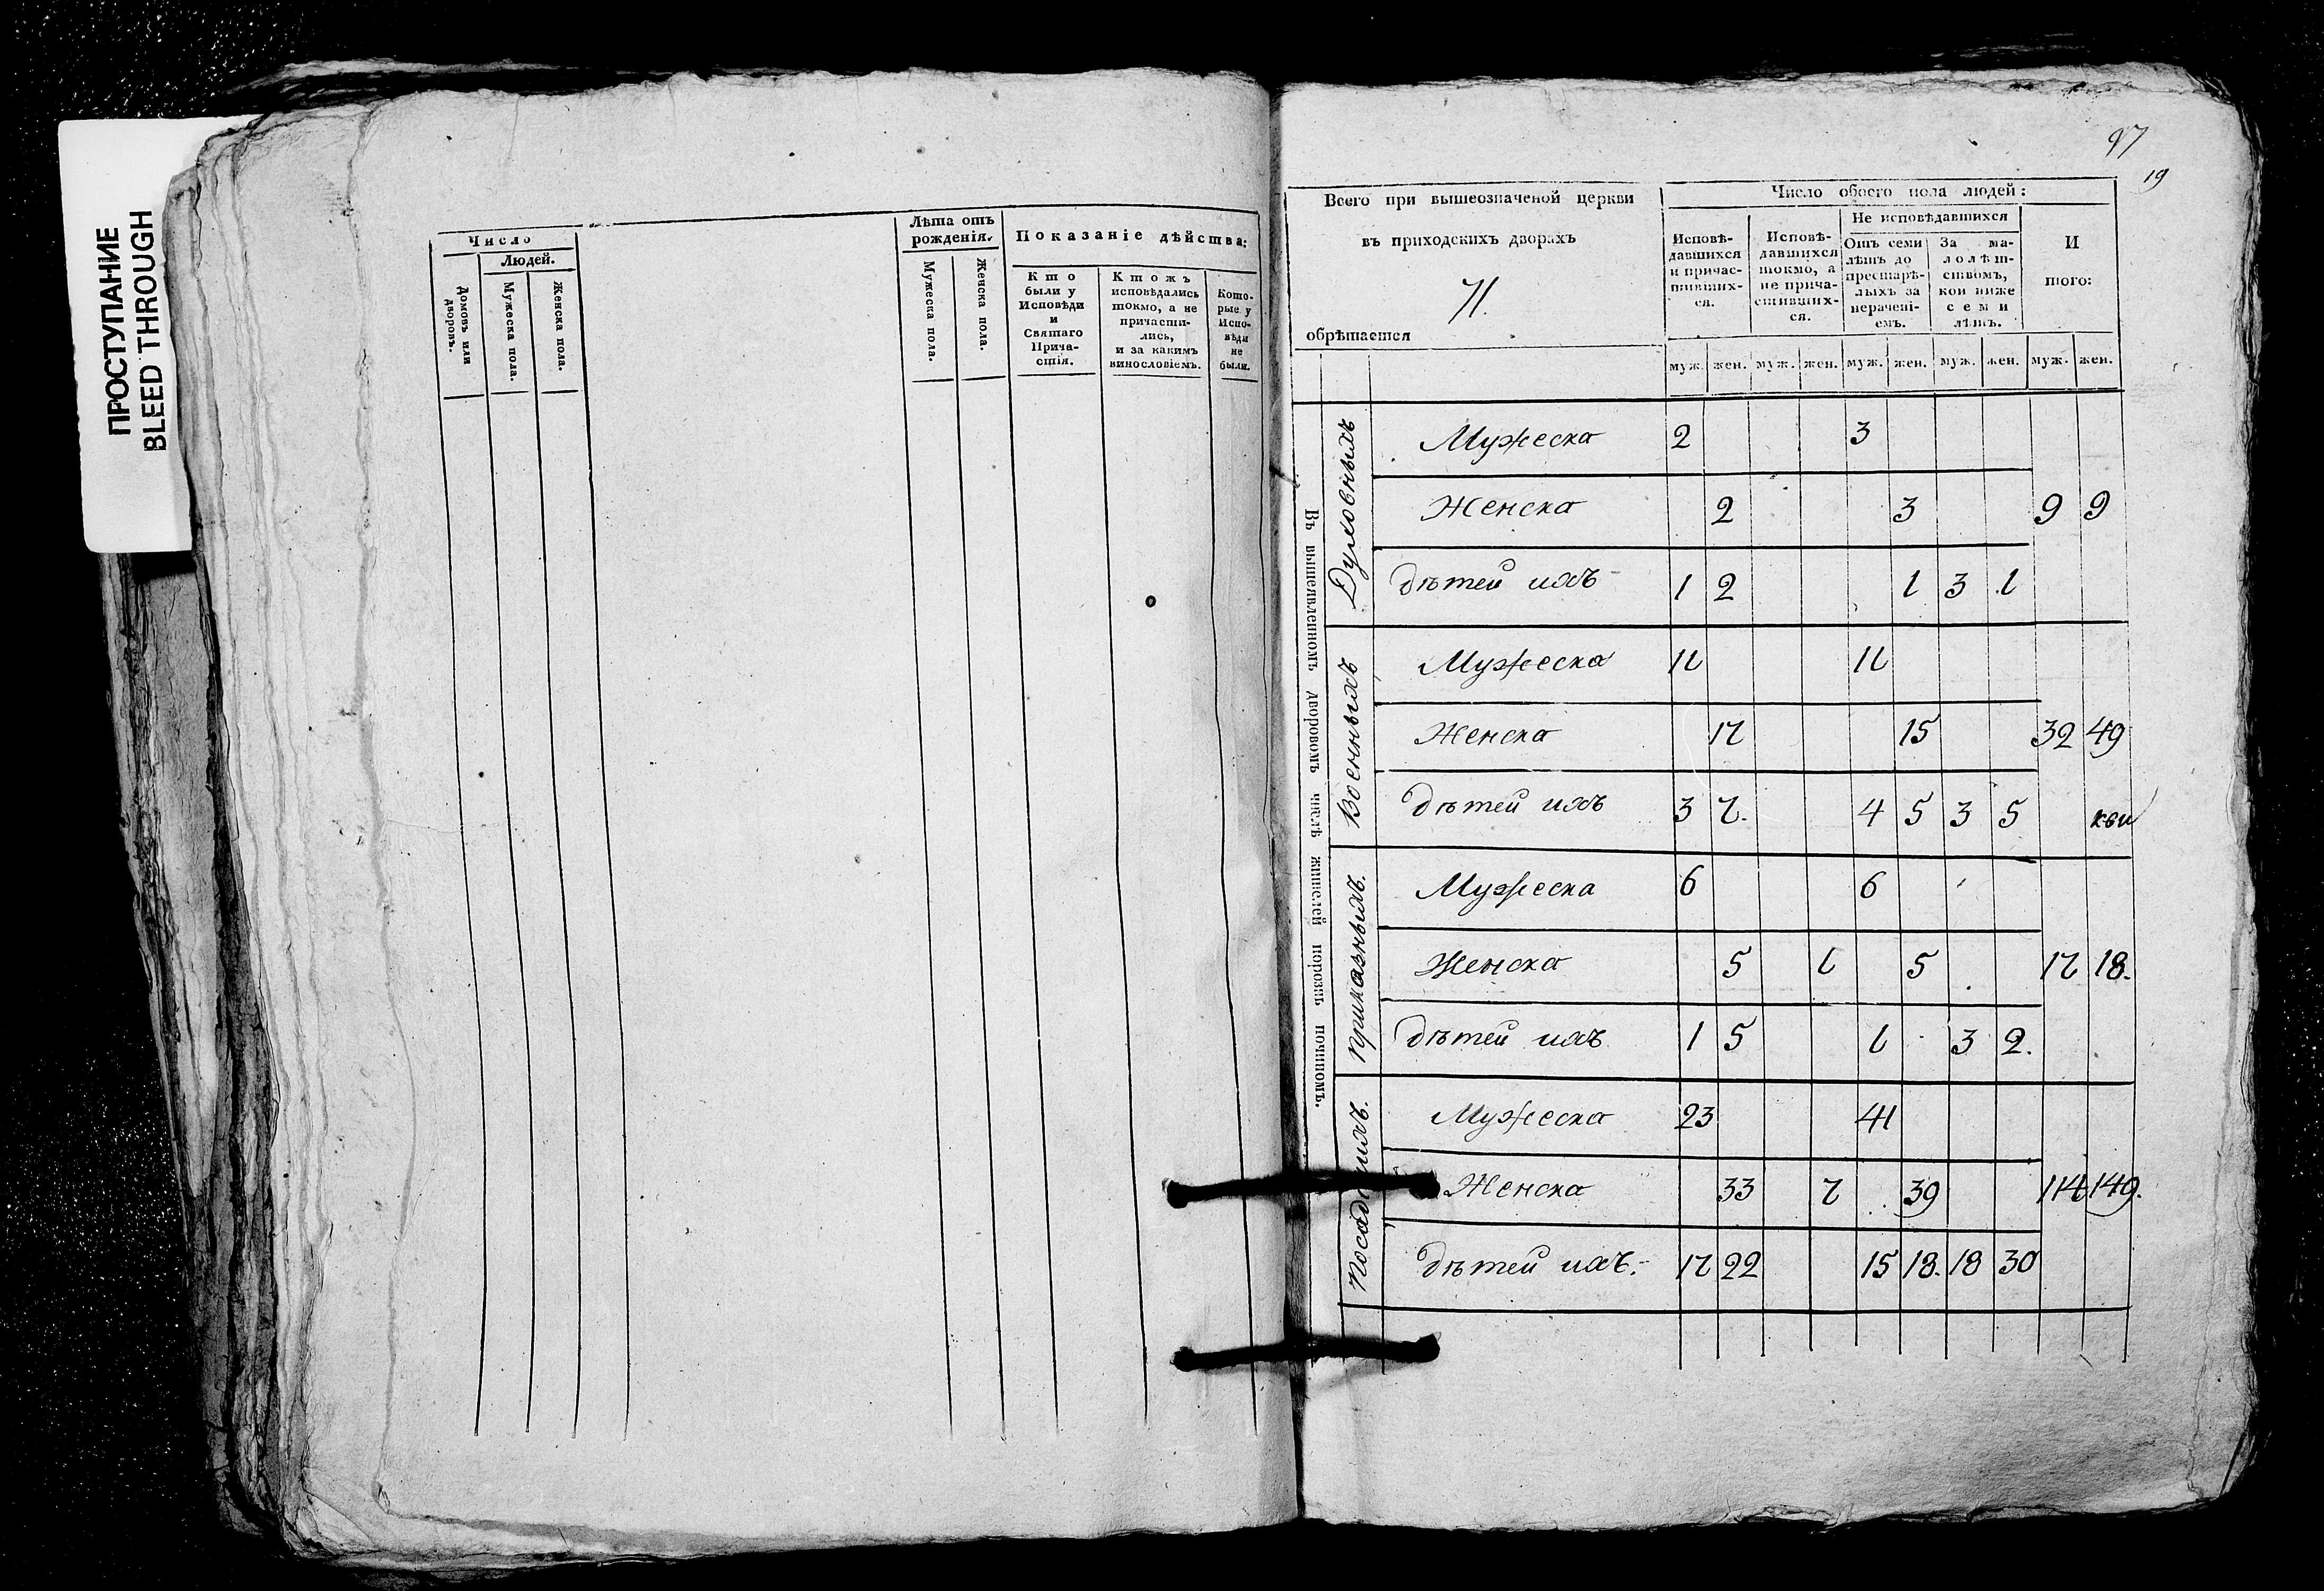 ПРОСТУПАНИЕ
BLEED THROUGH
Число
Людей.
Домовъ или дворовъ.
Мужеска пола.
Женска пола.
Лѣта отъ рожденія.
Мужеска пола.
Женска пола.
Показаніе дѣйства:
Кто были у Исповѣди и Святаго Прича-стія.
Ктожъ исповѣдались токмо, а не причасти-лись, и за какимъ винословіемъ.
Кото-рые у Испо-вѣди не были.
97
19
Всего при вышеозначеной церкви
въ приходскихъ дворахъ
71.
обрѣтается
Число обоего пола людей:
Исповѣ-давшихся и причас-тившихъ-ся.
Исповѣ-давшихся токмо, а не прича-стившихъ-ся.
Не исповѣдавшихся
Отъ семи лѣтъ до престарѣ-лыхъ за нерачені-емъ.
За ма-лолѣт-ствомъ, кои ниже семи лѣтъ.
И того:
муж. жен. муж. жен. муж. жен. муж. жен. муж. жен.
Въ вышеявленномъ дворовомъ числѣ жителей порознь починомъ.
Духовныхъ
Мужеска 2 3
Женска 2 3 9 9
дѣтей ихъ 1 2 1 3 1
Военныхъ
Мужеска 11 11
Женска 17 15 32 49
дѣтей ихъ 3 7. 4 5 3 5
Приказныхъ.
Мужеска 6 6
Женска 5 1 5 17 18.
дѣтей ихъ 1 5 1 3 2.
Мужеска 23 41
Женска 33 7 39 114 149.
дѣтей ихъ. 17 22 15 18. 18 30